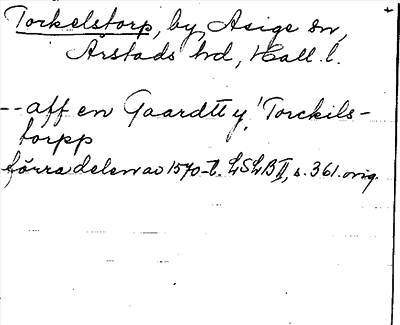 Torkelstorp, by, Asige sn,
Årstads hd, Hall. l.
-- aff en Gaardtt y, ! Torckils-
torpp
förra delen av 1570-t. LSLB II, s. 361. orig.